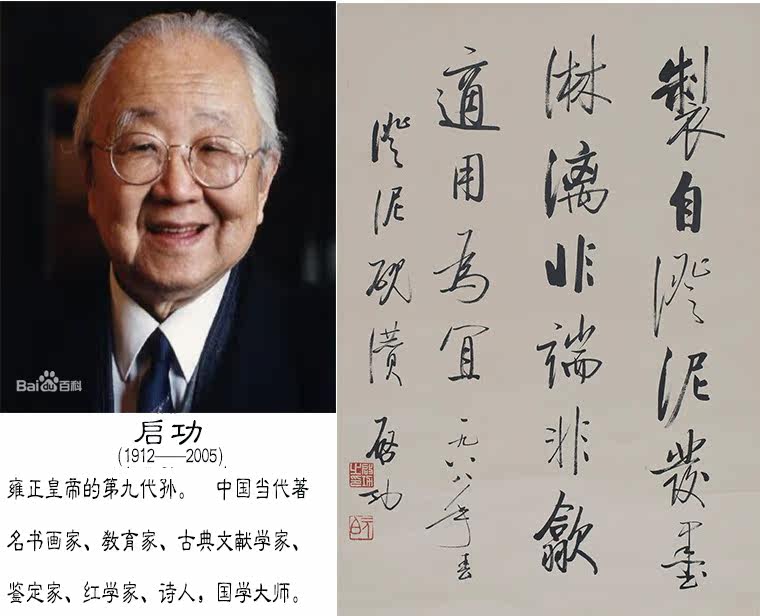 Bai du 百科
启功
(1912——2005)
雍正皇帝的第九代孙。 中国当代著
名书画家、教育家、古典文献学家、
鉴定家、红学家、诗人，国学大师。
製自澄泥發墨
淋漓非端非歙
適用為宜 一九八八年春
澄泥硯讚 啓功